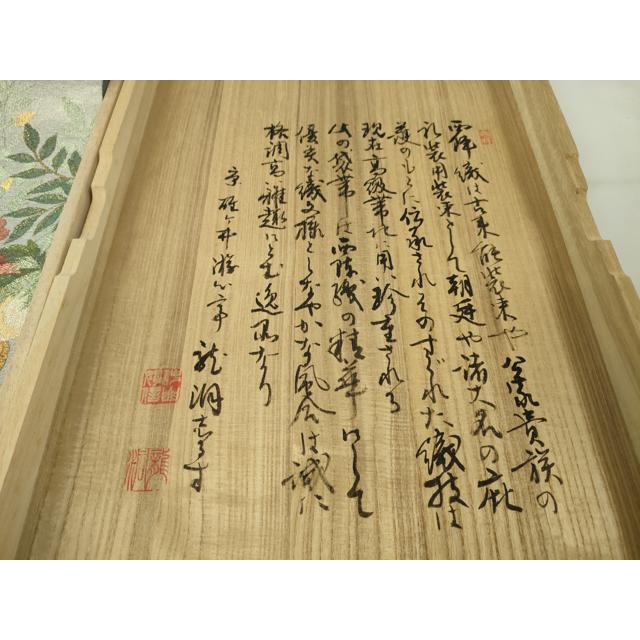 西陣織は古来能装束や公家貴族の
礼装用装束として朝廷や諸大名の庇
護のもとに伝承されそのすぐれた織技は
現在高級帯地に用い珍重される
此の袋帯は西陣織の精華にして
優美な織文様としなやかな風合は誠に
格調高く雅趣にとむ逸品なり
京 ヶ井 亭 龍洞しるす